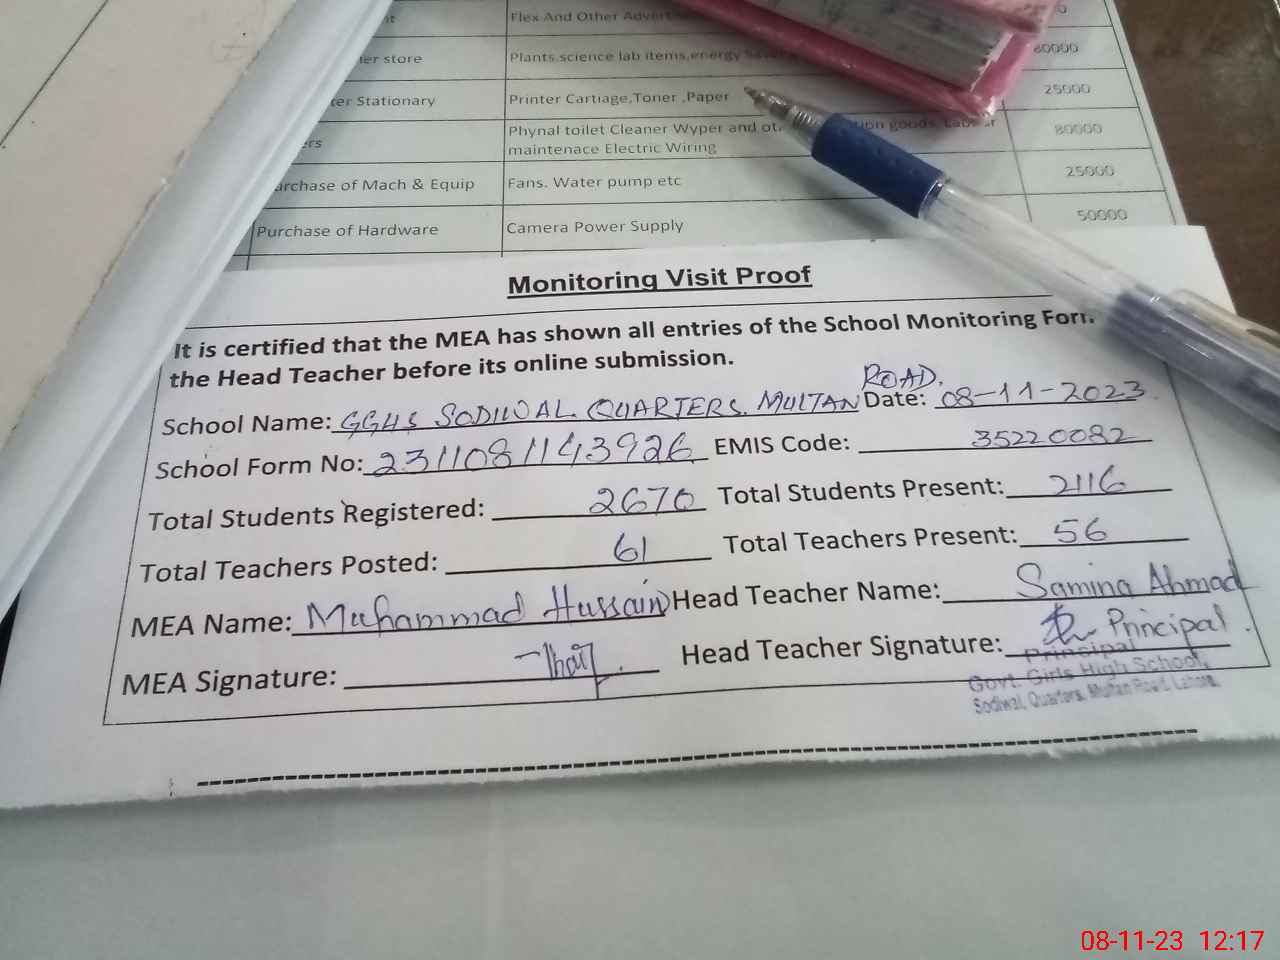 Flex And Other
er store Plants.science lab items,energy 80000
er Stationary Printer Cartiage,Toner ,Paper 25000
ers Phynal toilet Cleaner Wyper and goods, 80000
maintenace Electric Wiring
Purchase of Mach & Equip Fans. Water pump etc 25000
Purchase of Hardware Camera Power Supply 50000
Monitoring Visit Proof
It is certified that the MEA has shown all entries of the School Monitoring Form
the Head Teacher before its online submission.
School Name: GGHS SODIWAL QUARTERS. MULTAN ROAD. Date: 08-11-2023
School Form No: 2311081143926 EMIS Code: 35220082
Total Students Registered: 2670 Total Students Present: 2116
Total Teachers Posted: 61 Total Teachers Present: 56
MEA Name: Muhammad Hussain Head Teacher Name: Samina Ahmad
MEA Signature: Head Teacher Signature: Principal.
Principal
Govt. Girls High School,
Sodiwal, Quarters, Multan Road, Lahore.
08-11-23 12:17